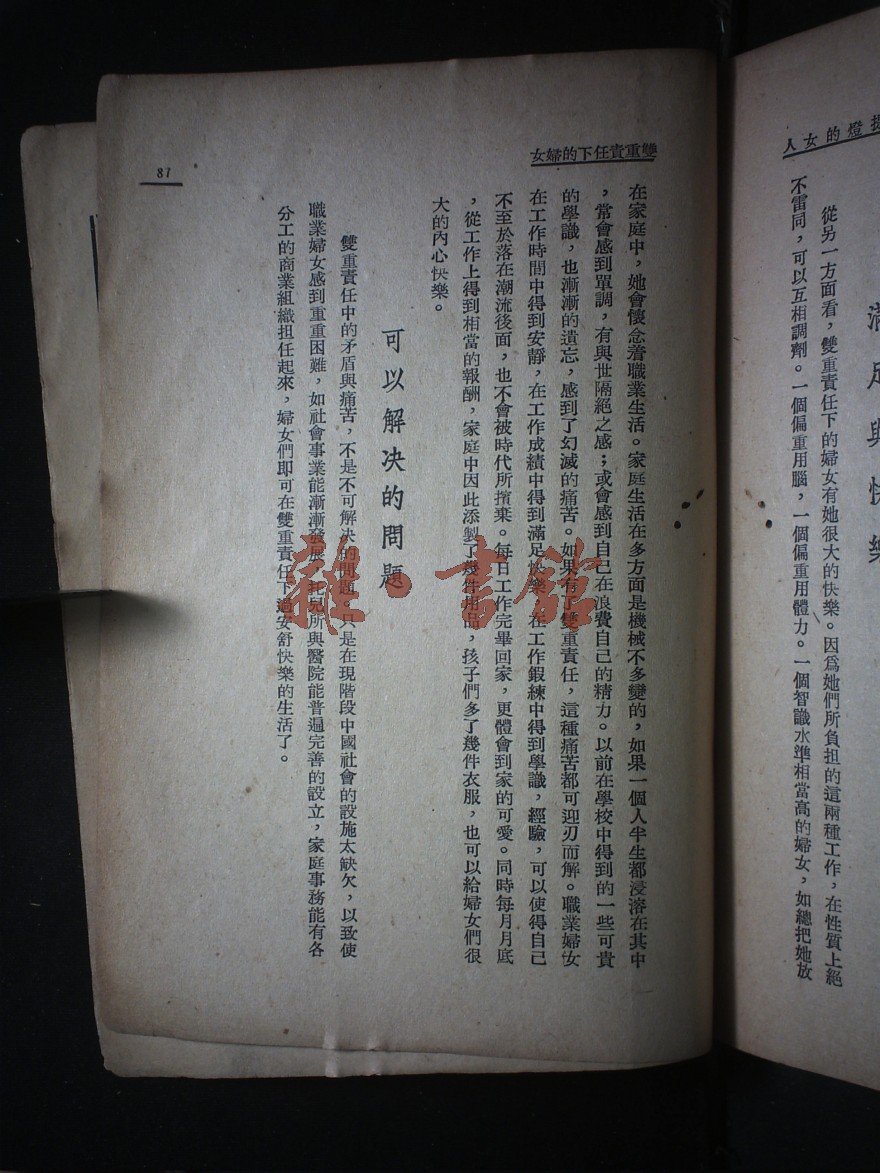 提燈的女人
滿足與快樂
從另一方面看，雙重責任下的婦女有她很大的快樂。因爲她們所負担的這兩種工作，在性質上絕
不雷同，可以互相調劑。一個偏重用腦，一個偏重用體力。一個智識水準相當高的婦女，如總把她放
雙重責任下的婦女
在家庭中，她會懷念着職業生活。家庭生活在多方面是機械不多變的，如果一個人半生都浸溶在其中
，常會感到單調，有與世隔絕之感；或會感到自己在浪費自己的精力。以前在學校中得到的一些可貴
的學識，也漸漸的遺忘，感到了幻滅的痛苦。如果有了雙重責任，這種痛苦都可迎刃而解。職業婦女
在工作時間中得到安靜，在工作成績中得到滿足快樂，在工作鍛練中得到學識，經驗，可以使得自己
不至於落在潮流後面，也不會被時代所擯棄。每日工作完畢回家，更體會到家的可愛。同時每月月底
，從工作上得到相當的報酬，家庭中因此添製了幾件用品，孩子們多了幾件衣服，也可以給婦女們很
大的內心快樂。
可以解决的問題
雙重責任中的矛盾與痛苦，不是不可解决的問題，只是在現階段中國社會的設施太缺欠，以致使
職業婦女感到重重困難，如社會事業能漸漸發展，托兒所與醫院能普遍完善的設立，家庭事務能有各
分工的商業組織担任起來，婦女們即可在雙重責任下過安舒快樂的生活了。
87
雜·書館